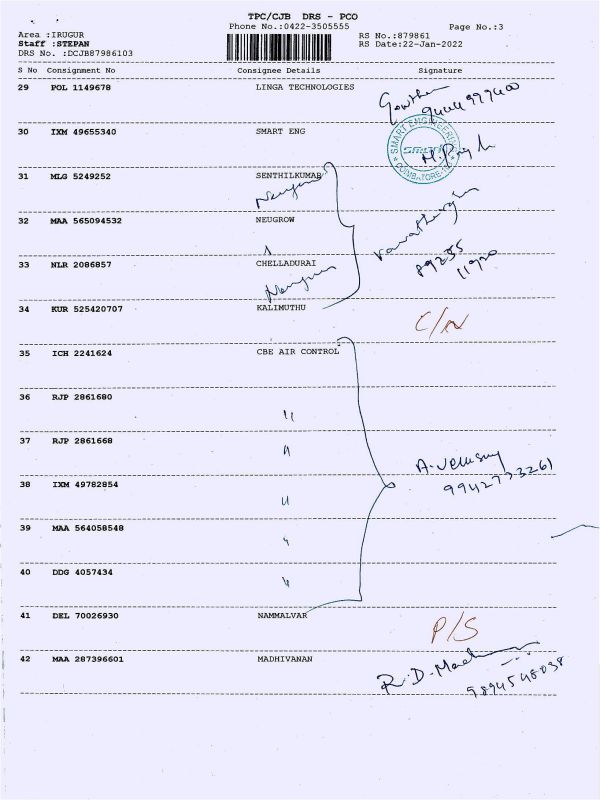 TPC/CJB DRS - PCO
Phone No.:0422-3505555
Page No.:3
Area :IRUGUR
RS No.:879861
Staff :STEPAN
RS Date:22-Jan-2022
DRS No. :DCJB87986103
S No Consignment No Consignee Details Signature
29 POL 1149678 LINGA TECHNOLOGIES
30 IXM 49655340 SMART ENG
SMART ENGINEERING
COIMBATORE
31 MLG 5249252 SENTHILKUMAR
32 MAA 565094532 NEUGROW
33 NLR 2086857 CHELLADURAI
34 KUR 525420707 KALIMUTHU
35 ICH 2241624 CBE AIR CONTROL
36 RJP 2861680 "
37 RJP 2861668 "
38 IXM 49782854 "
A. Velusamy
9942773261
39 MAA 564058548 "
40 DDG 4057434 "
41 DEL 70026930 NAMMALVAR P/S
42 MAA 287396601 MADHIVANAN
9894548038